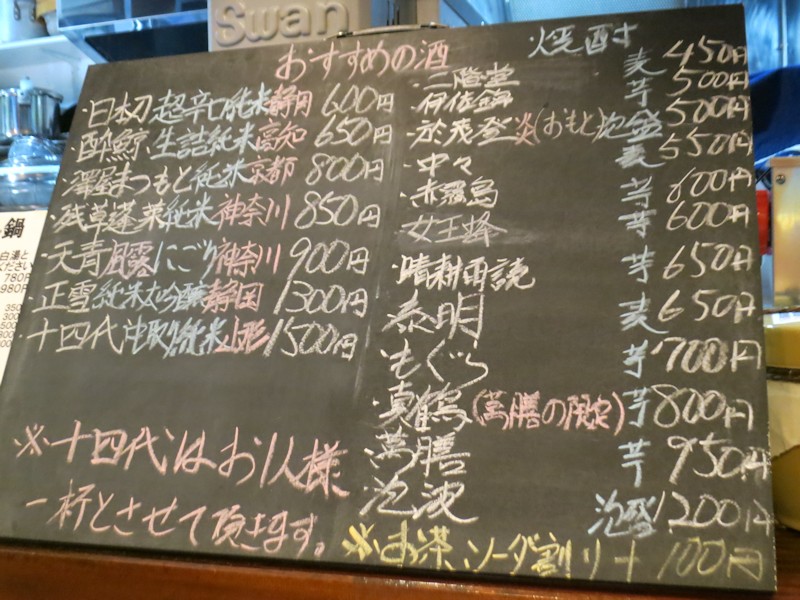 Swan
おすすめの酒
・日本刀 超辛口純米 静岡 600円
・酔鯨 生詰純米 高知 650円
・澤屋まつもと 純米 京都 800円
・残草蓬莱 純米 神奈川 850円
・天青 風露 にごり 神奈川 900円
・正雪 純米大吟醸 静岡 1300円
・十四代 中取り純米 山形 1500円
※十四代はお1人様
一杯とさせて頂きます。
焼酎
・二階堂 麦 450円
・伊佐錦 芋 500円
・於茂登炎(おもと) 泡盛 500円
・中々 麦 550円
・赤霧島 芋 600円
・女王蜂 芋 600円
・晴耕雨読 芋 650円
・泰明 麦 650円
・もぐら 芋 700円
・真鶴(萬膳の限定) 芋 800円
・萬膳 芋 950円
・泡波 泡盛 1200円
※お茶、ソーダ割り+100円
鍋
白湯と
ださい
780円
980円